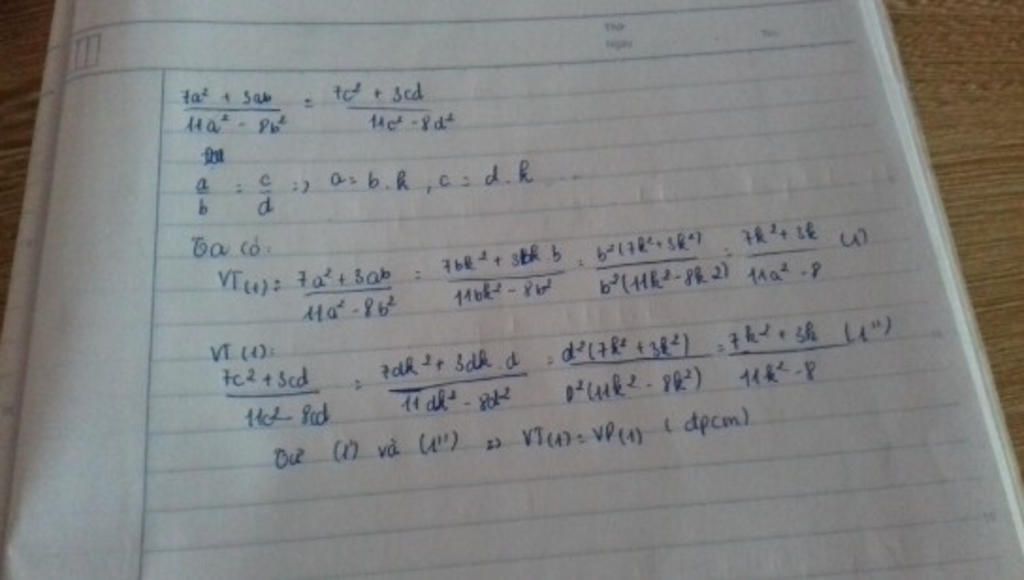 Thứ
Ngày No.
7a² + 3ab / 11a² - 8b² = 7c² + 3cd / 11c² - 8d²
a/b = c/d => a = b.k, c = d.k
Ta có:
VT(1) = 7a² + 3ab / 11a² - 8b² = 7bk² + 3bk.b / 11bk² - 8b² = b²(7k² + 3k²) / b²(11k² - 8k2) = 7k² + 3k / 11a² - 8 (1)
VT (1):
7c² + 3cd / 11c² - 8cd = 7dk² + 3dk.d / 11dk² - 8d² = d²(7k² + 3k²) / D²(11k² - 8k²) = 7k² + 3k / 11k² - 8 (1'')
Từ (1') và (1'') => VT(1) = VP(1) (đpcm)